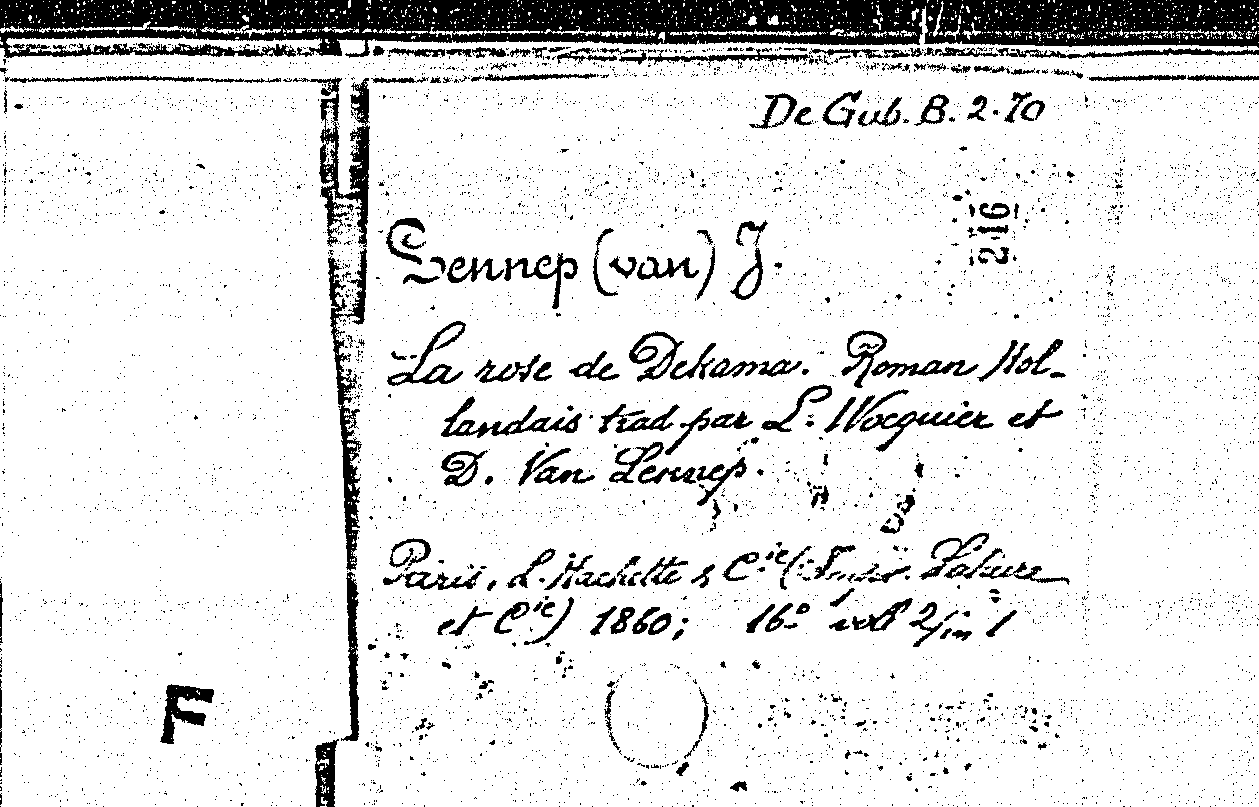 De Gub. B. 2.70
216
Lennep (van) J.
La rose de Dekama. Roman Hol-
landais trad par L. Wocquier et
D. Van Lennep.
Paris, L. Hachette & Cie (Impr. Lahure
et Cie) 1860; 16º voll 2/in 1
F